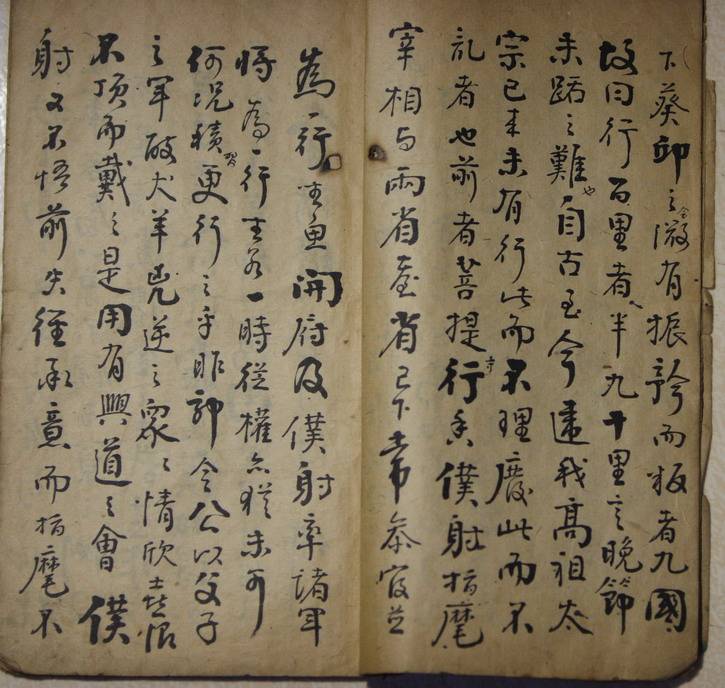 下葵邱之會微有振矜而叛者九國
故曰行百里者半九十里言晚節
未路之難也自古至今逮我高祖太
宗已来未有行此而不理廢此而不
亂者也前者菩提寺行香僕射指麾
宰相与兩省臺省已下常参官並
為一行坐魚開府及僕射率諸軍
將為一行坐若一時從權亦猶未可
何況積習更行之乎昨郭令公以父子
之軍破犬羊兇逆之衆〻情欣喜恨
不頂而戴之是用有興道之會僕
射又不悟前失徑承意而指麾不